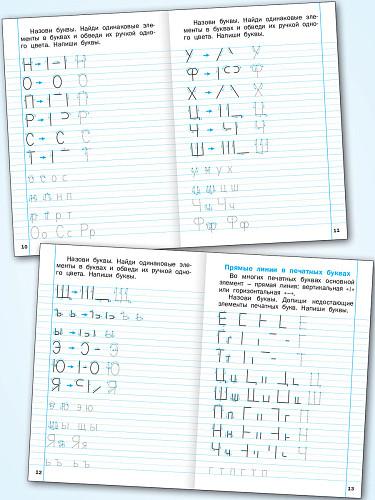 Назови буквы. Найди одинаковые эле-
менты в буквах и обведи их ручкой одно-
го цвета. Напиши буквы.
Н Н
О О О
П П
Р Р
С С С
Т Т
о с о с
ю н п
п р т
Оо Сс Рр
10
Назови буквы. Найди одинаковые эле-
менты в буквах и обведи их ручкой одно-
го цвета. Напиши буквы.
У У
Ф Ф
Х Х
Ц Ц
Ч Ч
Ш Ш
и у х
ц ш
Чч Чч
Фф Фф
11
Назови буквы. Найди одинаковые эле-
менты в буквах и обведи их ручкой одно-
го цвета. Напиши буквы.
Щ Щ
Ъ ь Ъ ь
Ы
Э Э
Ю Ю
Я Я
э ю
щ ы
Яя Яя
ь ъ ь ъ
12
Прямые линии в печатных буквах
Во многих печатных буквах основной
элемент – прямая линия: вертикальная «I»
или горизонтальная «—».
Назови буквы. Допиши недостающие
элементы печатных букв. Напиши буквы.
Е Е
Г г
Т т
Ц ц
Ш ш
П п
Н н
Ч ч
г т п г т п
13